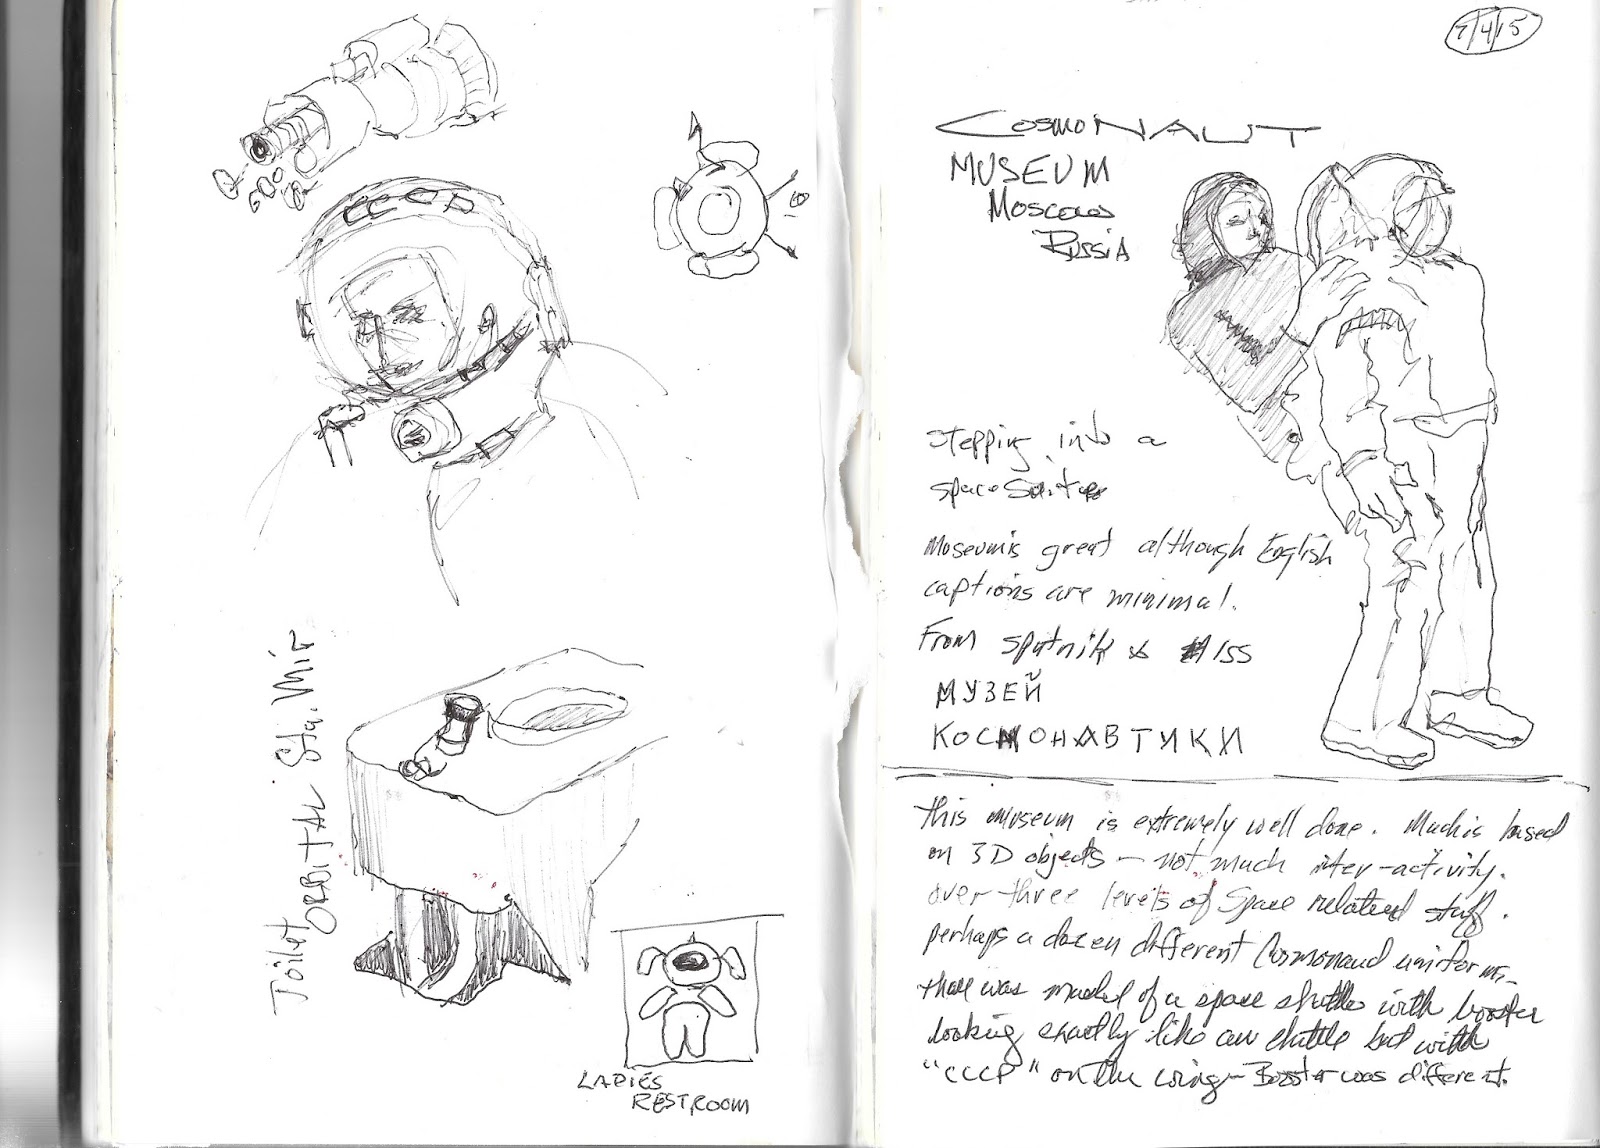 CCCP
Toilet
ORBITAL Sta. Mir
LADIES
RESTROOM
7/4/15
COSMONAUT
MUSEUM
Moscow
RUSSIA
stepping into a
space suit
Museum is great although English
captions are minimal.
From Sputnik to ISS
МУЗЕЙ
КОСМОНАВТИКИ
This museum is extremely well done. Much is based
on 3D objects – not much inter-activity.
over three levels of Space related stuff.
perhaps a dozen different Cosmonaud uniforms.
there was model of a space shuttle with booster
looking exactly like our shuttle but with
"CCCP" on the wing – Booster was different.